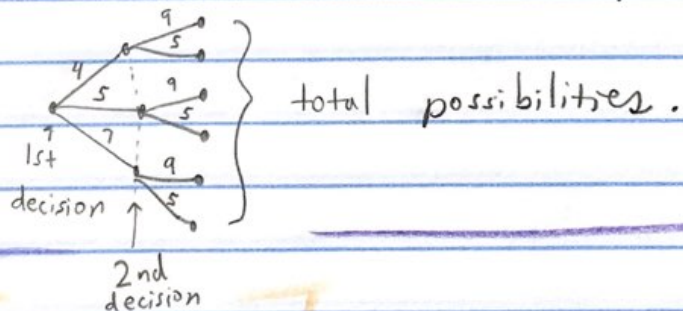 9
5
4
5
9
5
total possibilities.
7
1st
decision
9
5
2nd
decision